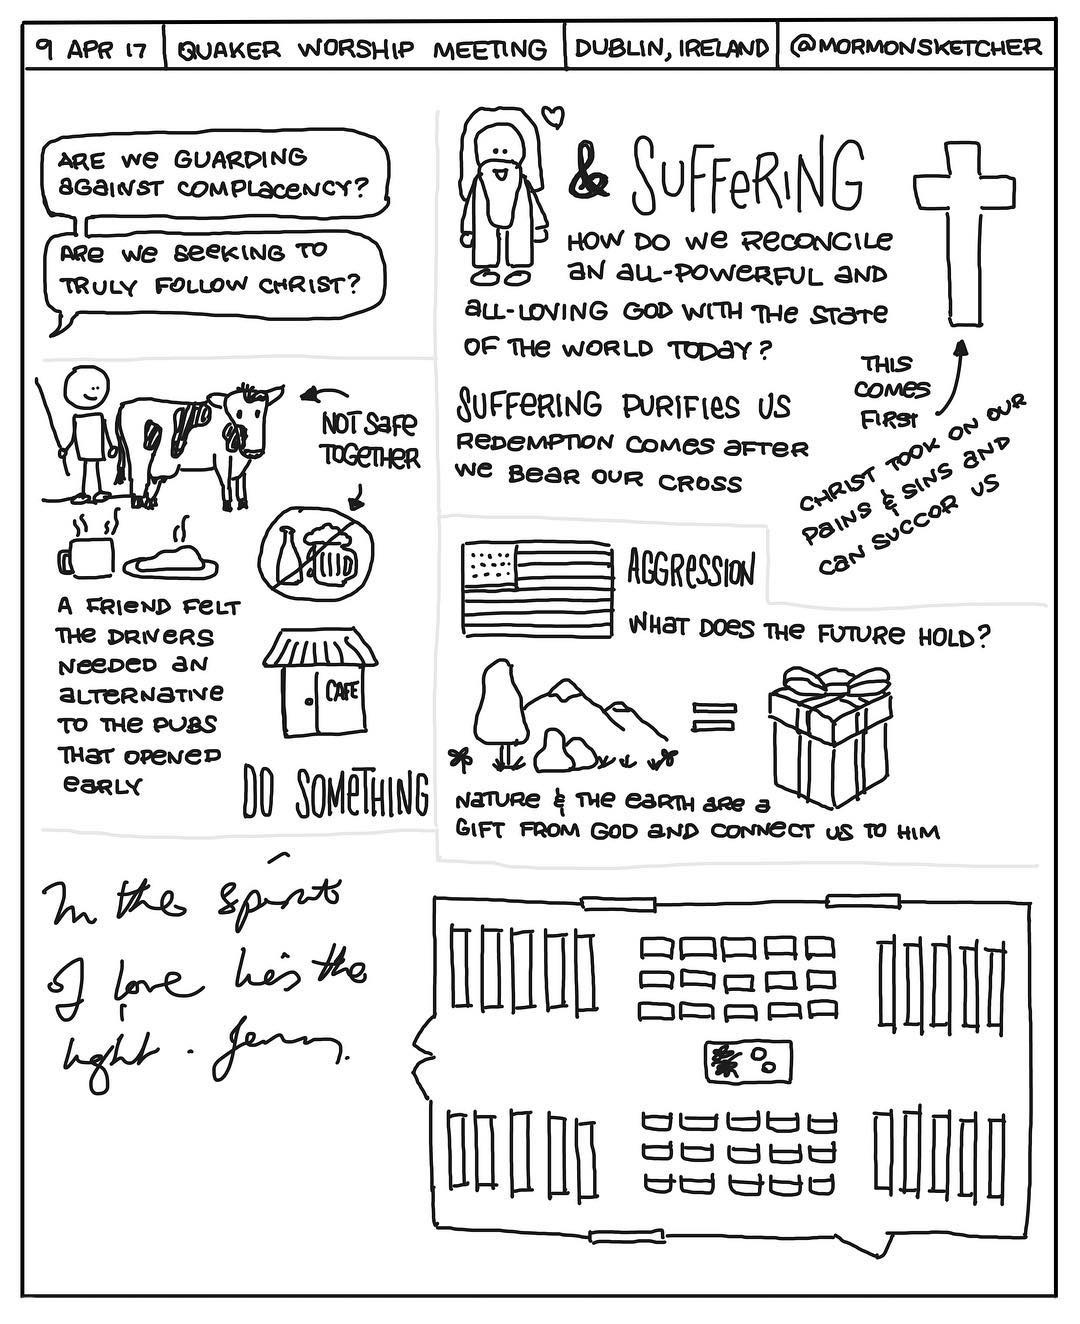 9 APR 17
QUAKER WORSHIP MEETING
DUBLIN, IRELAND
@MORMONSKETCHER
ARE WE GUARDING
AGAINST COMPLACENCY?
ARE WE SEEKING TO
TRULY FOLLOW CHRIST?
& SUFFERING
HOW DO WE RECONCILE
AN ALL-POWERFUL AND
ALL-LOVING GOD WITH THE STATE
OF THE WORLD TODAY?
SUFFERING PURIFIES US
REDEMPTION COMES AFTER
WE BEAR OUR CROSS
THIS
COMES
FIRST
CHRIST TOOK ON OUR
PAINS & SINS AND
CAN SUCCOR US
NOT SAFE
TOGETHER
A FRIEND FELT
THE DRIVERS
NEEDED AN
ALTERNATIVE
TO THE PUBS
THAT OPENED
EARLY
CAFE
DO SOMETHING
AGGRESSION
WHAT DOES THE FUTURE HOLD?
=
NATURE & THE EARTH ARE A
GIFT FROM GOD AND CONNECT US TO HIM
In the spirit
of love lies the
light.